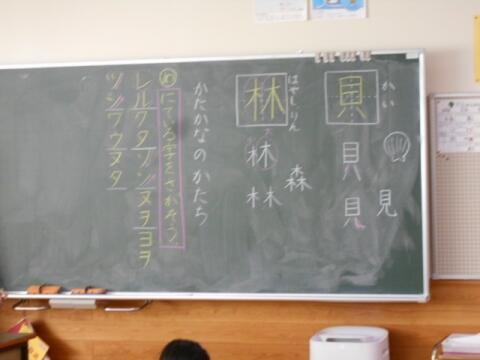 かい
貝
貝
見
見
はやし
りん
林
林
林
森
かたかなのかたち
めにている字をさがそう
レルクタソンヌヲヨヲ
ツシワウヌタ